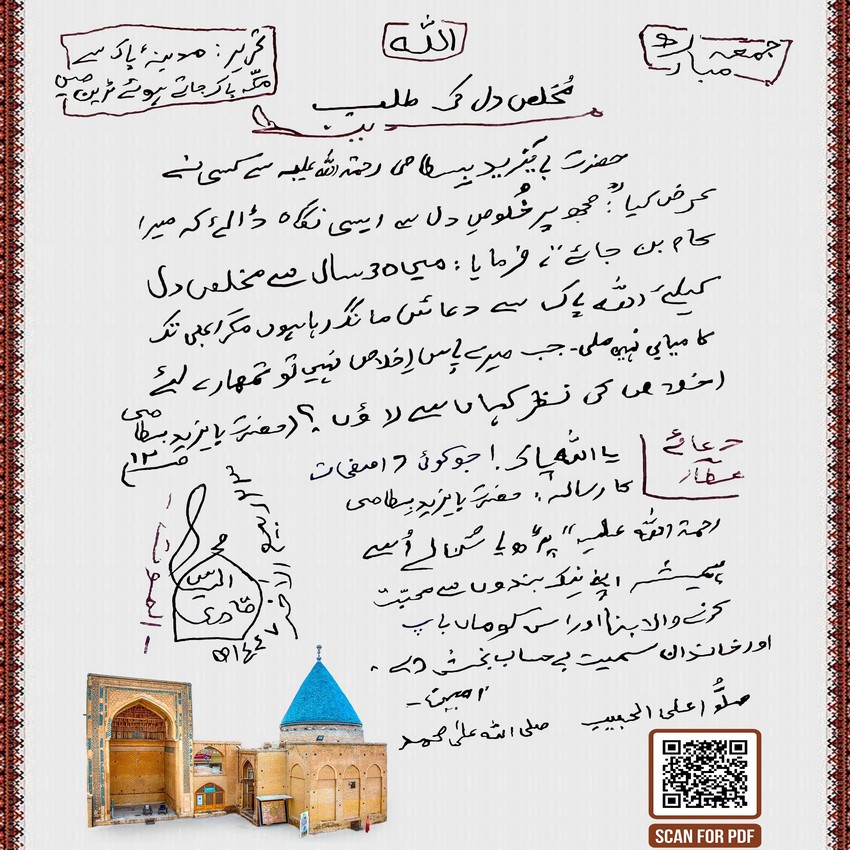 اللہ
جمعہ مبارک
تحریر: مدینۂ پاک سے
مکہ پاک جاتے ہوئے ٹرین میں
مُخلص دل کی طلب
حضرت بایزید بِسطامی رحمۃ اللہ علیہ سے کسی نے
عرض کیا: "مجھ پر خُلوصِ دل سے ایسی نگاہ ڈالئے کہ میرا
کام بن جائے"، فرمایا: میں 30 سال سے مخلص دل
کیلئے اللہ پاک سے دعائیں مانگ رہا ہوں مگر ابھی تک
کامیابی نہیں ملی۔ جب میرے پاس اِخلاص نہیں تو تمھارے لئے
اخلاص کی نظر کہاں سے لاؤں؟ (حضرت بایزید بسطامی
ص ۱۲
دعائے عطار
یا اللہ پاک! جو کوئی 17 صفحات
کا رسالہ: "حضرت بایزید بِسطامی
رحمۃ اللہ علیہ" پڑھ یا سُن لے اُسے
ہمیشہ اپنے نیک بندوں سے محبّت
کرنے والا بنا اور اس کو ماں باپ
اور خاندان سمیت بے حساب بخش دے۔
اٰمین۔
صلُّوا علی الحبیب
صلی اللہ علیٰ محمد
محمد الیاس قادری
ربیع الآخر
۱۴۴۷ھ
الموت
SCAN FOR PDF